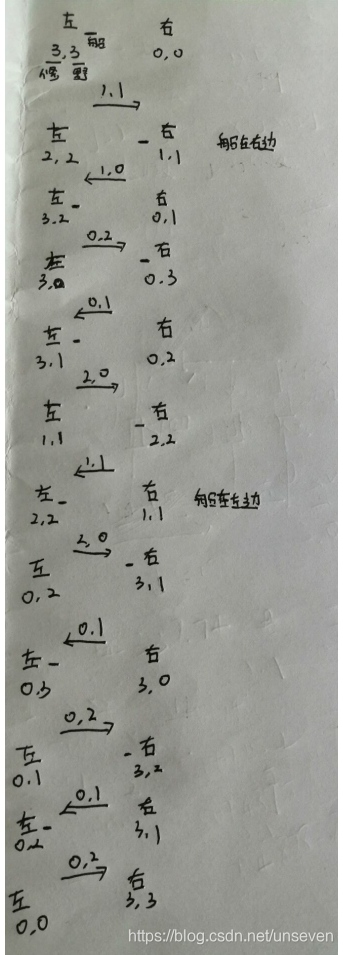 左 船 右
3,3 0,0
修 野
1,1
左 右 船在右边
2,2 1,1
1,0
左 右
3,2 0,1
0,2
左 右
3,0 0,3
0,1
左 右
3,1 0,2
2,0
左 右
1,1 2,2
1,1
左 右 船在左边
2,2 1,1
2,0
左 右
0,2 3,1
0,1
左 右
0,3 3,0
0,2
左 右
0,1 3,2
0,1
左 右
0,2 3,1
0,2
左 右
0,0 3,3
https://blog.csdn.net/unseven